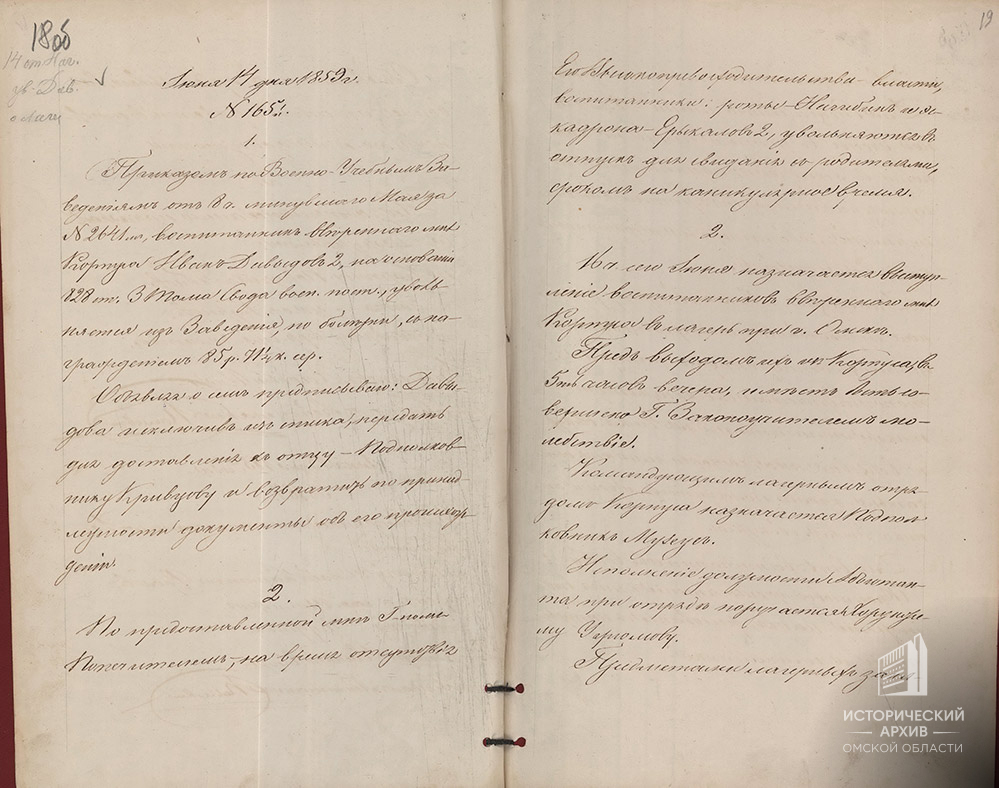 18об
14 от Наг.
ув. Дав.
о лаг.
Іюня 14 дня 1859 г.
№ 165й.
1.
Приказомъ по Военно-Учебнымъ За-
веденіямъ отъ 8 ч. минувшаго Мая за
№ 2641м, воспитанникъ ввѣреннаго мнѣ
Корпуса Иванъ Давыдовъ 2, на основаніи
828 ст. 3 Тома Свода воен. пост., уволь-
няется изъ Заведенія, по болѣзни, съ на-
гражденіемъ 85 р. 71 к. сер.
Объявляя о семъ предписываю: Давы-
дова исключивъ изъ списка, передать
для доставленія къ отцу – Подполков-
нику Кривцову и возвратить по принад-
лежности документы объ его происхож-
деніи.
2.
По предоставленной мнѣ Г-номъ
Попечителемъ, на время отсутствія
19
Его Высокопревосходительства – власти,
воспитанники: роты – Нагибинъ и эс-
кадрона – Ерыкаловъ 2, увольняются въ
отпускъ для свиданія съ родителями,
срокомъ на каникулярное время.
2.
16 ч. сего Іюня назначается выступ-
леніе воспитанниковъ ввѣреннаго мнѣ
Корпуса въ лагерь при г. Омскѣ.
Предъ выходомъ ихъ изъ Корпуса, въ
5ть часовъ вечера, имѣетъ быть со-
вершено Г. Законоучителемъ мо-
лебствіе.
Командующимъ лагернымъ отря-
домъ Корпуса назначается Подпол-
ковникъ Мухусъ.
Исполненіе должности Адъютан-
та при отрядѣ поручается Хорунже-
му Угрюмову.
Предметами лагерныхъ заня
ИСТОРИЧЕСКИЙ
АРХИВ
ОМСКОЙ ОБЛАСТИ